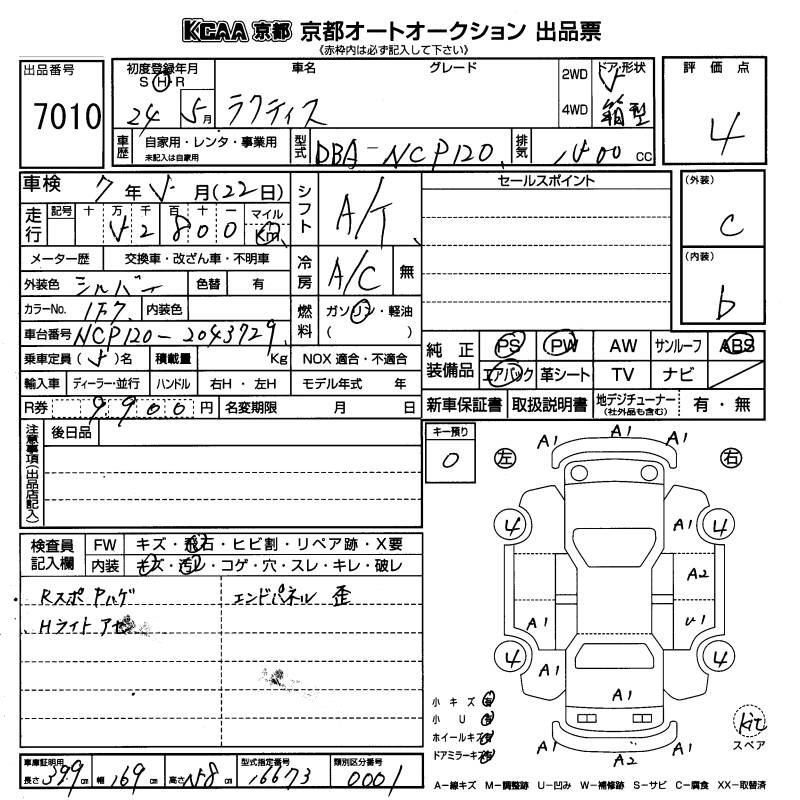 KCAA 京都 京都オートオークション 出品票
《赤枠内は必ず記入して下さい》
出品番号
7010
初度登録年月
S H R
24 5月
車名
ラクティス
グレード
2WD
4WD
ドア・形状
5
箱型
評価点
4
車歴
自家用・レンタ・事業用
未記入は自家用
型式
DBA-NCP120
排気
1500 cc
車検 7年5月(22日)
走行
記号 十 万 千 百 十 一 マイル
5 2 8 0 0 Km
シフト
A/T
セールスポイント
(外装)
C
(内装)
b
メーター歴 交換車・改ざん車・不明車
冷房
A/C
無
外装色 シルバー 色替 有
カラーNo. 1F7 内装色
燃料
ガソリン・軽油
( )
車台番号 NCP120-2043729
乗車定員(5)名 積載量 Kg NOX 適合・不適合
輸入車 ディーラー・並行 ハンドル 右H・左H モデル年式 年
R券 9900円 名変期限 月 日
純正装備品
PS PW AW サンルーフ ABS
エアバック 革シート TV ナビ
新車保証書 取扱説明書 地デジチューナー(社外品も含む) 有・無
注意事項(出品店記入)
後日品
キー預り
0
左
右
検査員記入欄
FW キズ・飛石・ヒビ割・リペア跡・X要
内装 キズ・汚レ・コゲ・穴・スレ・キレ・破レ
Rスポ Pハゲ
エンドパネル 歪
Hライト アセ
A1 A1 A1
4 A1 4
A2
A1 U1
4 A1 4
A1
A1 A2 A1
小キズ 有
小U 有
ホイールキズ 有
ドアミラーキズ 有
kit
スペア
車庫証明用
長さ 399cm
幅 169cm
高さ 158cm
型式指定番号
16673
類別区分番号
0001
A-線キズ M-調整跡 U-凹み W-補修跡 S-サビ C-腐食 XX-取替済